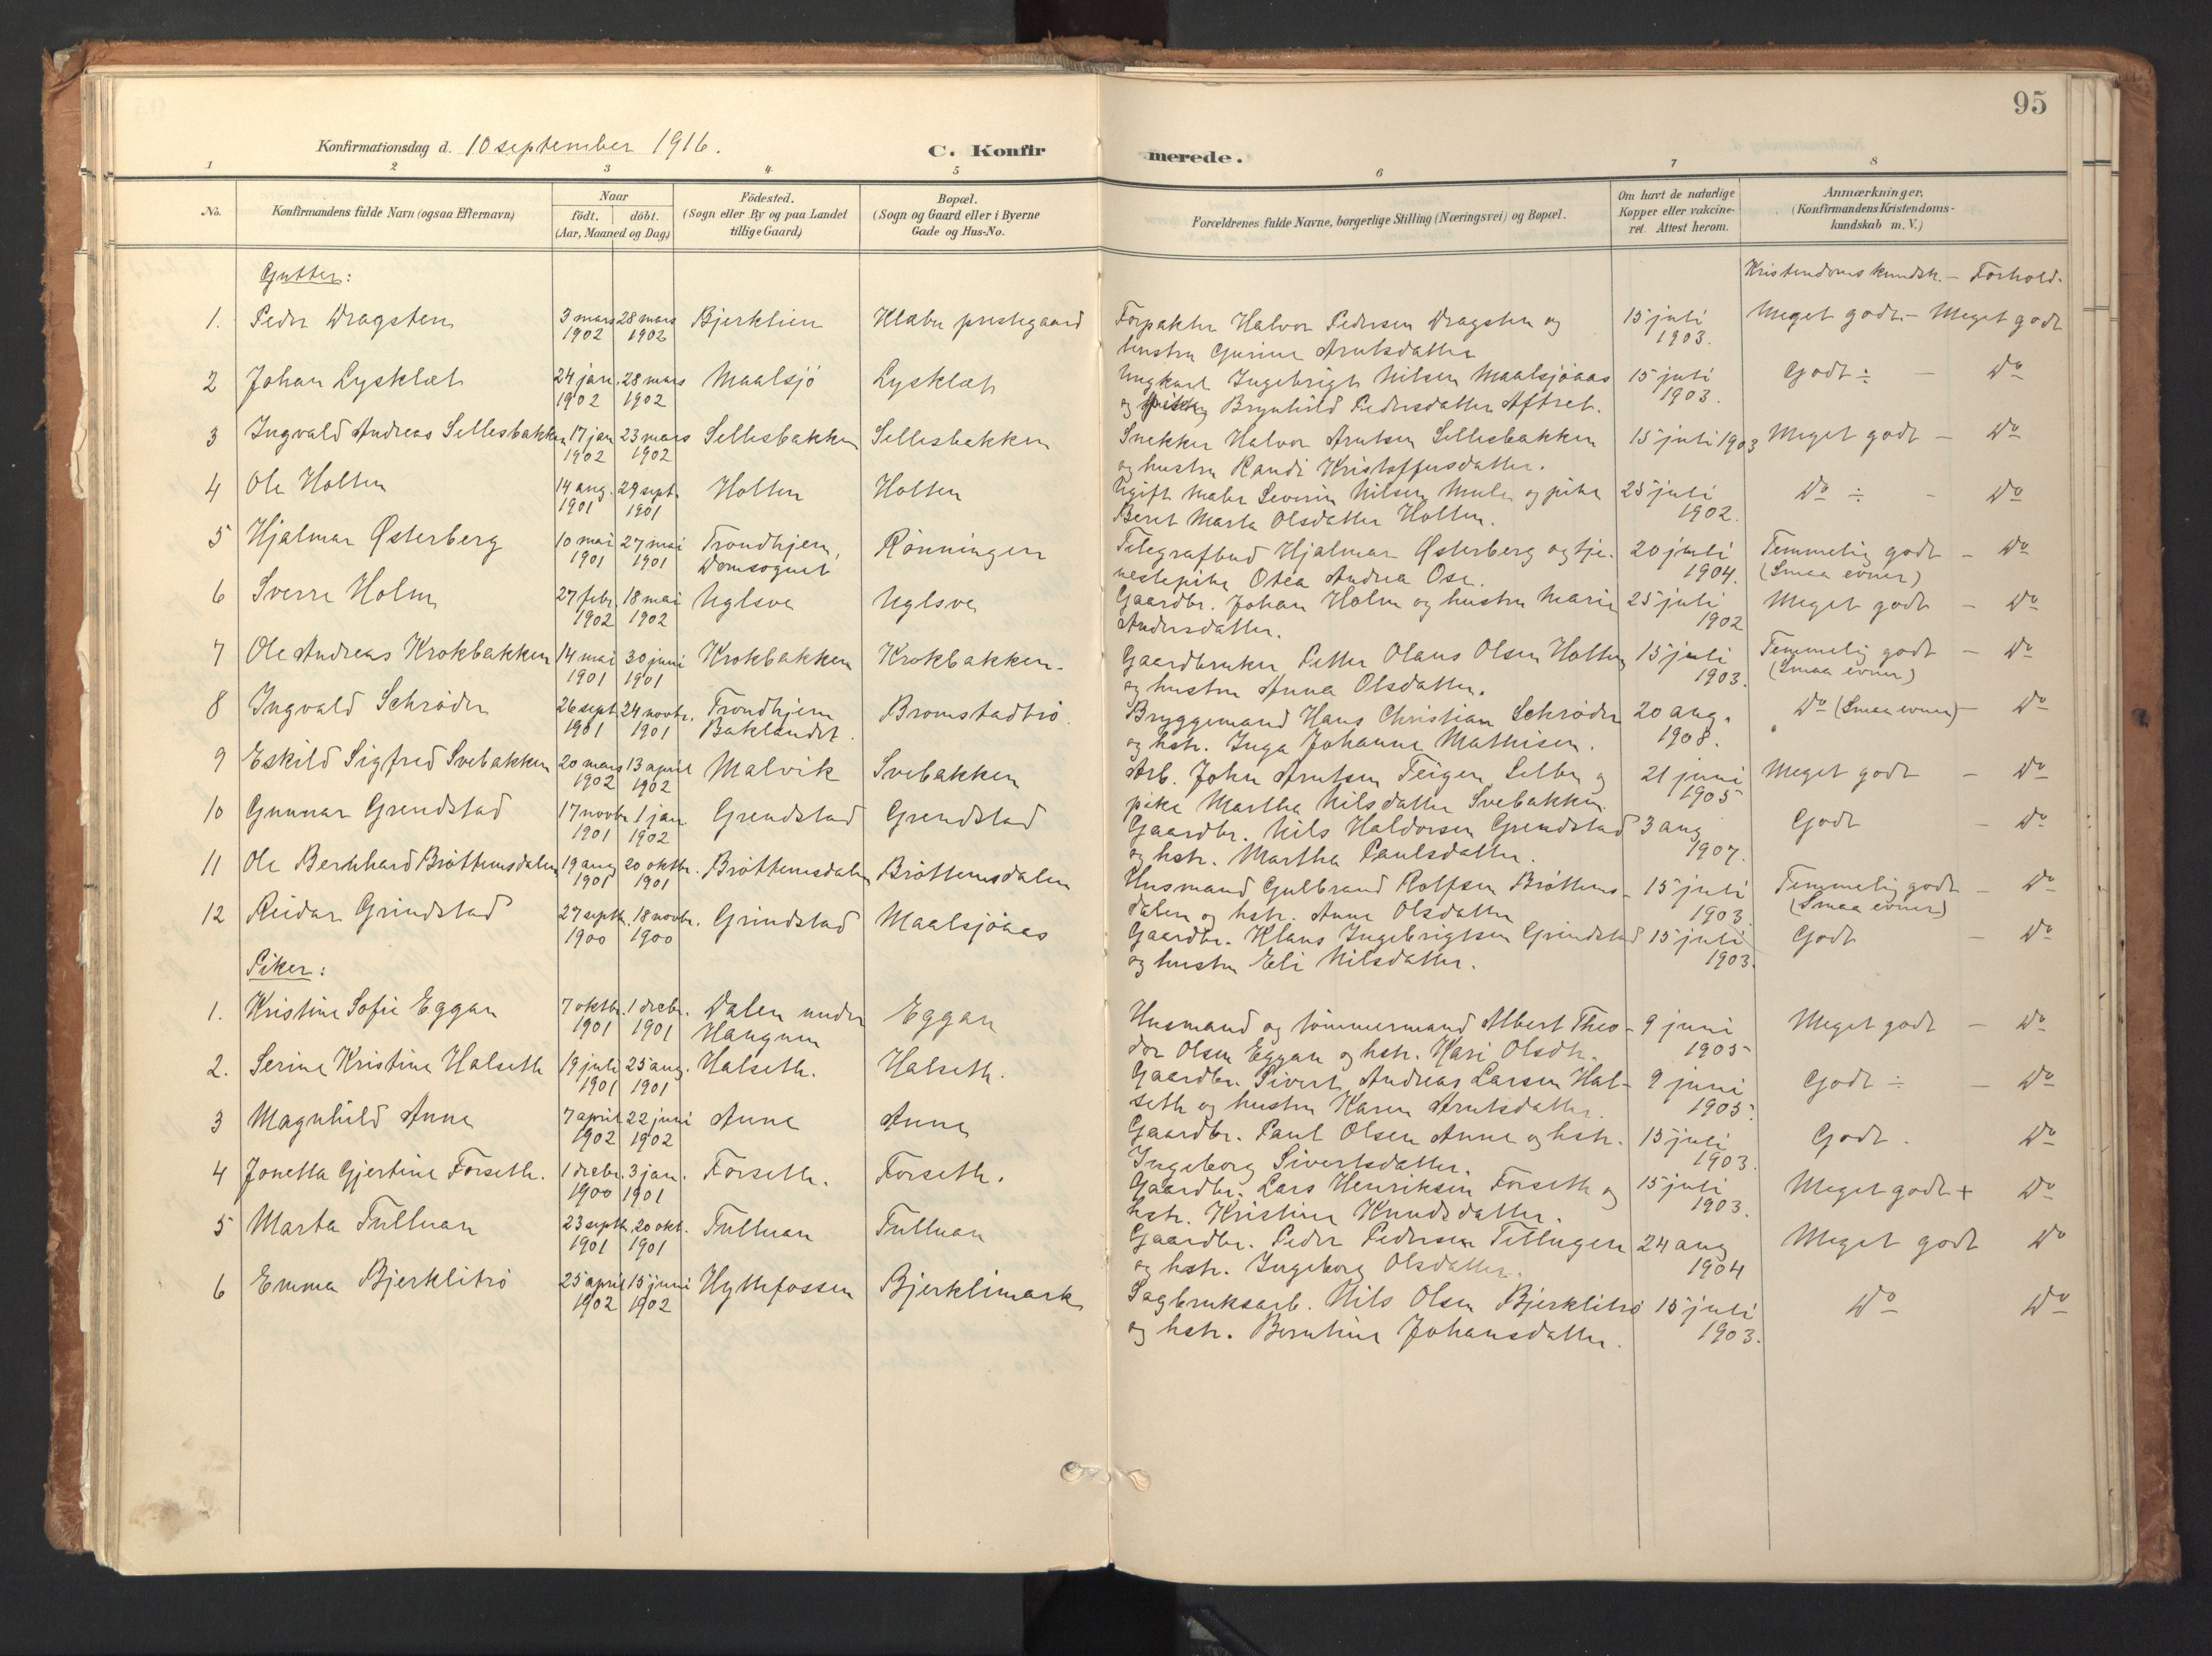 95
Konfirmationsdag d. 10 september 1916.
C. Konfirmerede.
1 2 3 4 5 6 7 8
No.
Konfirmandens fulde Navn (ogsaa Efternavn)
Naar
födt. döbt.
(Aar, Maaned og Dag)
Födested.
(Sogn eller By og paa Landet
tillige Gaard)
Bopæl.
(Sogn og Gaard eller i Byerne
Gade og Hus-No.
Forældrenes fulde Navne, borgerlige Stilling (Næringsvei) og Bopæl.
Om havt de naturlige
Kopper eller vakcine-
ret. Attest herom.
Anmærkninger.
(Konfirmandens Kristendoms-
kundskab m. V.)
Gutter:
Kristendomskundsk. - Forhold.
1. Peder Dragsten 3 mars 28 mars Bjerklien Klæbu prestegaard Forpakter Halvor Pedersen Dragsten og 15 juli Meget godt - Meget godt
1902 1902 hustru Gurine Arntsdatter 1903.
2 Johan Lysklæt 24 jan. 28 mars Maalsjö Lysklæt Ungkarl Ingebrigt Nilsen Maalsjöaas 15 juli Godt ÷ - Do
1902 1902 og pike Brynhild Pedersdatter Aftret. 1903.
3 Ingvald Andreas Sellesbakken 17 jan 23 mars Sellesbakken Sellesbakken Snekker Halvor Arntsen Sellesbakken 15 juli 1903 Meget godt - Do
1902 1902 og hustru Randi Kristoffersdatter.
4 Ole Holten 14 aug. 29 sept. Holten Holten Ugift maler Severin Nilsen Mule og pike 25 juli Do ÷ - Do
1901 1901 Beret Marta Olsdatter Holten. 1902.
5 Hjalmar Østerberg 10 mai 27 mai Trondhjem, Rönningen Telegrafbud Hjalmar Østerberg og tje- 20 juli Temmelig godt - Do
1901 1901 Domsognet nestepike Otea Andrea Ose. 1904. (Smaa evner)
6 Sverre Holm 27 febr. 18 mai Uglsve Uglsve Gaardbr. Johan Holm og hustru Marie 25 juli Meget godt - Do
1902 1902 Andersdatter. 1902
7 Ole Andreas Krokbakken 14 mai 30 juni Krokbakken Krokbakken. Gaardbruker Petter Olaus Olsen Holten 15 juli Temmelig godt - Do
1901 1901 og hustru Anna Olsdatter. 1903. (Smaa evner)
8 Ingvald Schröder 26 sept. 24 novbr. Trondhjem Bromstadtrö. Bryggemand Hans Christian Schröder 20 aug. Do (Smaa evner) - Do
1901 1901 Baklandet. og hstr. Inga Johanne Mathisen. 1908.
9 Eskild Sigfred Svebakken 20 mars 13 april Malvik Svebakken Arb. John Arntsen Teigen Selbu og 21 juni Meget godt - Do
1902 1902 pike Martha Nilsdatter Svebakken. 1905
10 Gunnar Grendstad 17 novbr 1 jan. Grendstad Grendstad Gaardbr. Nils Haldorsen Grendstad 3 aug Godt - Do
1901 1902 og hstr. Martha Paulsdatter. 1907.
11 Ole Bernhard Bröttemsdalen 19 aug 20 oktbr. Bröttemsdalen Bröttemsdalen Husmand Gulbrand Rolfsen Bröttems- 15 juli Temmelig godt - Do
1901 1901 dalen og hstr. Anne Olsdatter 1903. (Smaa evner)
12 Reidar Grindstad 27 septb. 18 novbr. Grindstad Maalsjöaas Gaardbr. Klaus Ingebrigtsen Grindstad 15 juli Godt - Do
1900 1900 og hustru Eli Nilsdatter. 1903.
Piker:
1. Kristine Sofie Eggan 7 oktbr. 1 decbr. Dalen under Eggan Husmand og tömmermand Albert Theo- 9 juni Meget godt - Do
1901 1901 Haugum dor Olsen Eggan og hstr. Kari Olsdtr. 1905
2. Serine Kristine Halseth 19 juli 25 aug. Halseth. Halseth. Gaardbr. Sivert Andreas Larsen Hal- 9 juni Godt ÷ - Do
1901 1901 seth og hustru Karen Arntsdatter. 1905.
3 Magnhild Aune 7 april 22 juni Aune Aune Gaardbr. Paul Olsen Aune og hstr. 15 juli Godt. Do
1902 1902 Ingeborg Sivertsdatter. 1903.
4 Jonetta Gjertine Forseth. 1 decbr. 3 jan. Forseth. Forseth. Gaardbr. Lars Henriksen Forseth og 15 juli Meget godt + Do
1900 1901 hstr. Kristine Knudsdatter. 1903.
5 Marta Tulluan 23 septb. 20 oktb. Tulluan Tulluan Gaardbr. Peder Pedersen Tellugen 24 aug Meget godt Do
1901 1901 og hstr. Ingeborg Olsdatter. 1904
6 Emma Bjerklitrö 25 april 15 juni Hyttefossen Bjerklimark Sagbruksarb. Nils Olsen Bjerklitrö 15 juli Do Do
1902 1902 og hstr. Berntine Johansdatter. 1903.